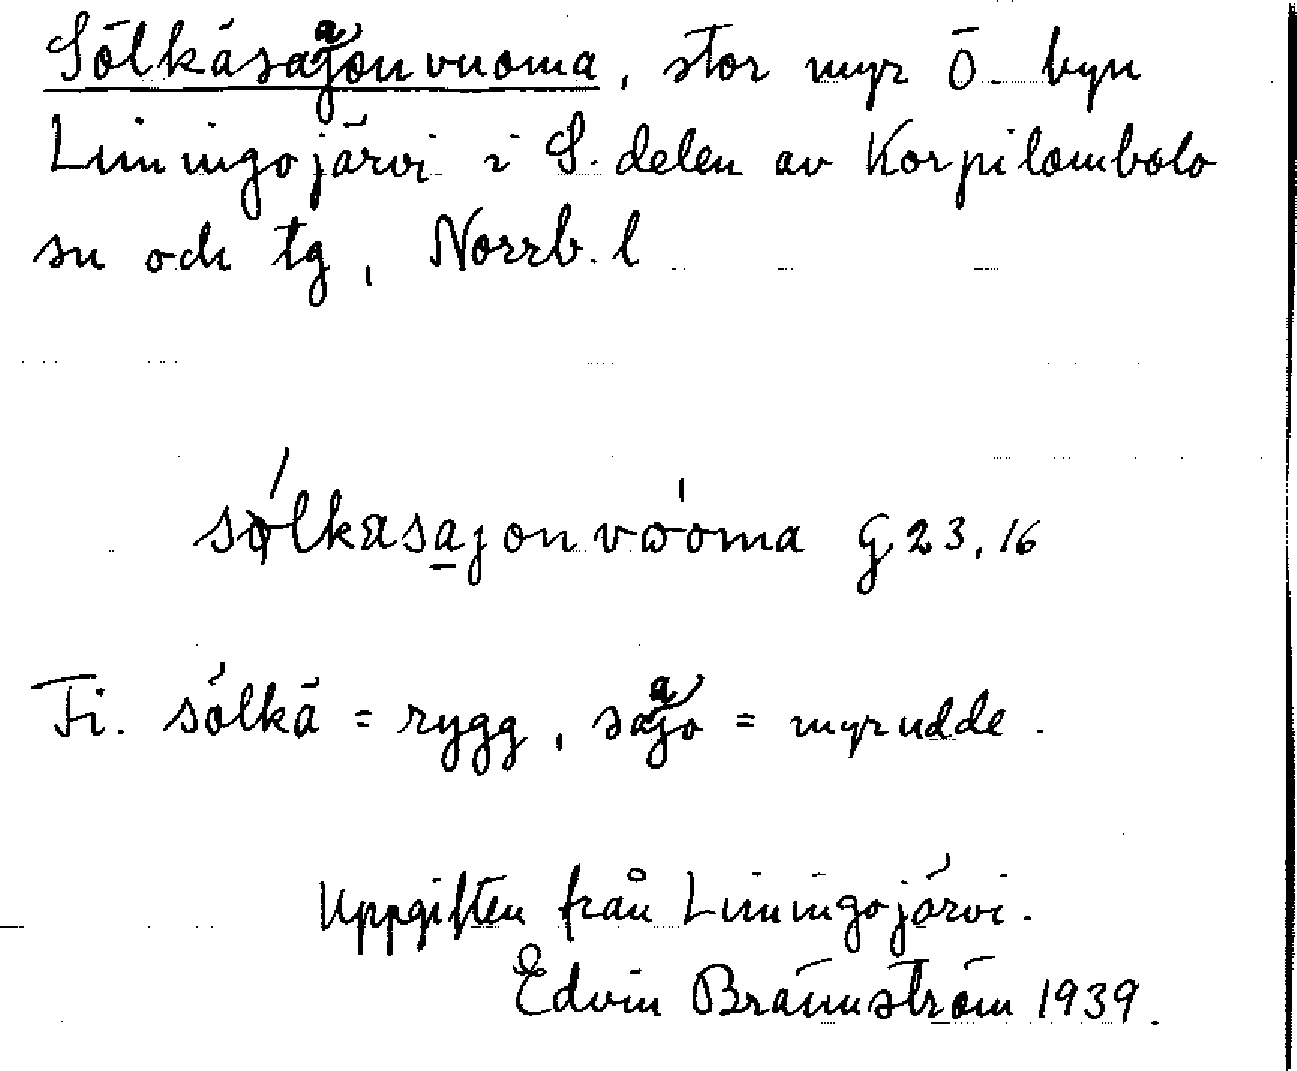 Sölkäsajonvuoma, stor myr Ö. byn
Liiningojärvi i S. delen av Korpilombolo
sn och tg, Norrb. l
sø̀lkæsa̱jonvω'oma G 23,16
Fi. sölkä = rygg, sajo = myrudde.
Uppgiften från Liiningojärvi.
Edvin Brännström 1939.